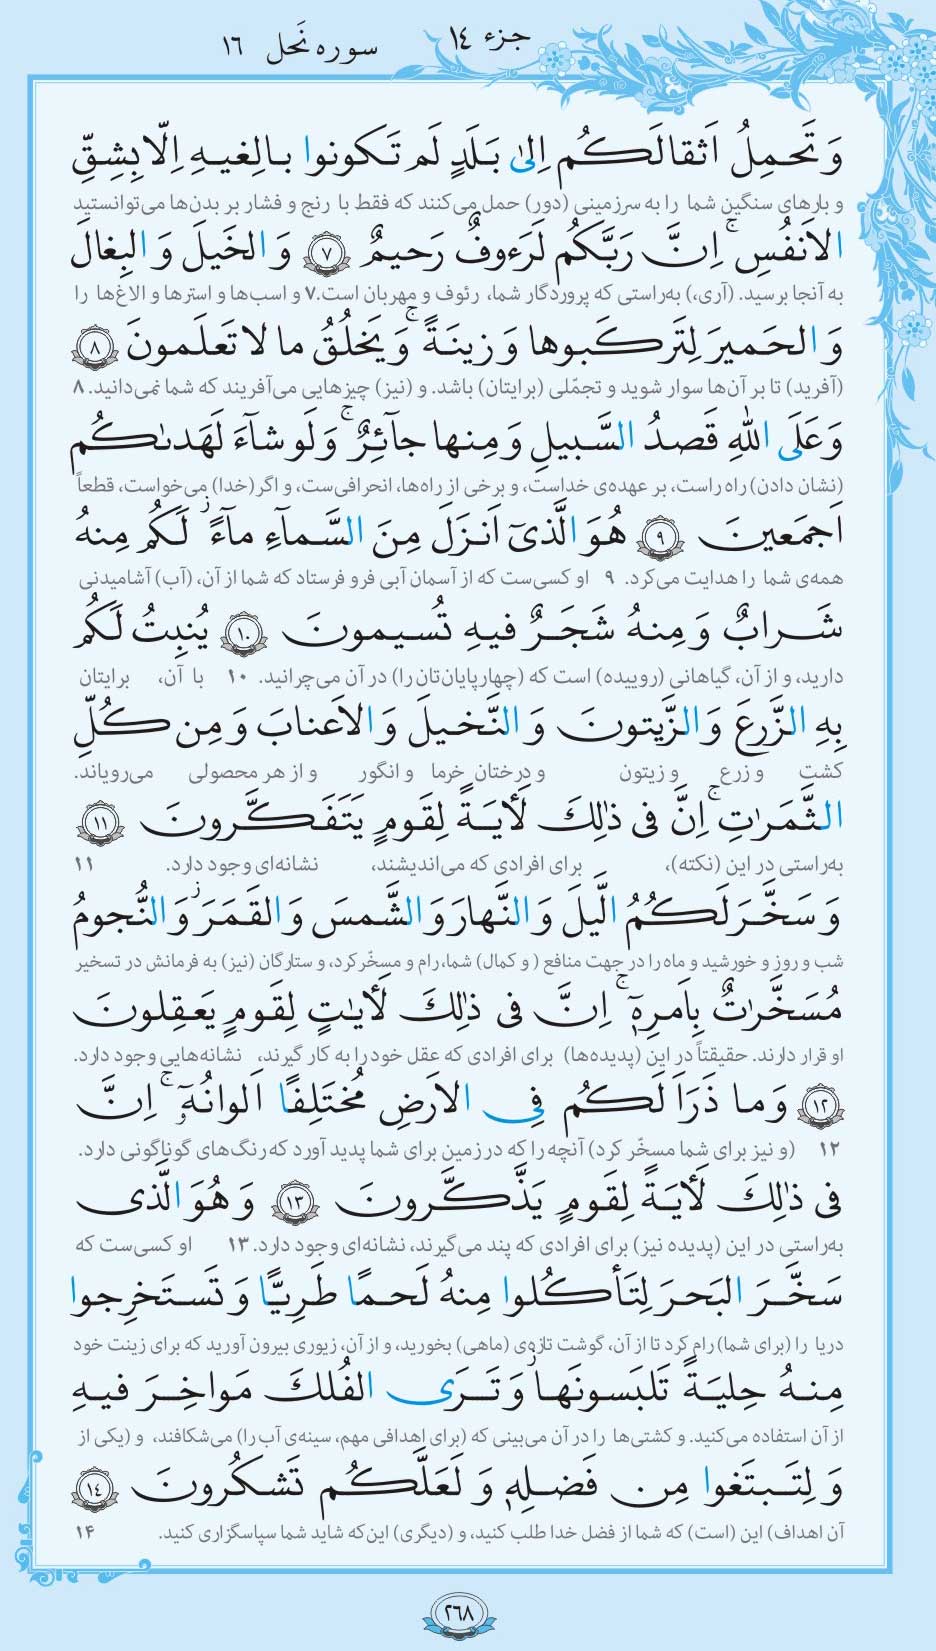 جزء ١٤
سوره نَحل ١٦
وَ تَحمِلُ اَثقالَكُم اِلىٰ بَلَدٍ لَم تَكونوا بالِغيهِ اِلّا بِشِقِّ
و بارهای سنگین شما را به سرزمینی (دور) حمل می‌کنند که فقط با رنج و فشار بر بدن‌ها می‌توانستید
الاَنفُسِ ۚ اِنَّ رَبَّكُم لَرَءوفٌ رَحيمٌ ﴿٧﴾ وَ الخَيلَ وَ البِغالَ
به آنجا برسید. (آری،) به‌راستی که پروردگار شما، رئوف و مهربان است. ۷ و اسب‌ها و استرها و الاغ‌ها را
وَ الحَميرَ لِتَركَبوها وَ زينَةً ۚ وَ يَخلُقُ ما لا تَعلَمونَ ﴿٨﴾
(آفرید) تا بر آن‌ها سوار شوید و تجمّلی (برایتان) باشد. و (نیز) چیزهایی می‌آفریند که شما نمی‌دانید. ۸
وَ عَلَى اللهِ قَصدُ السَّبيلِ وَ مِنها جآئِرٌ ۚ وَ لَو شآءَ لَهَدىٰكُم
(نشان دادن) راه راست، بر عهده‌ی خداست، و برخی از راه‌ها، انحرافی‌ست، و اگر (خدا) می‌خواست، قطعاً
اَجمَعينَ ﴿٩﴾ هُوَ الَّذىٓ اَنزَلَ مِنَ السَّمآءِ مآءً ۖ لَكُم مِنهُ
همه‌ی شما را هدایت می‌کرد. ۹ او کسی‌ست که از آسمان آبی فرو فرستاد که شما از آن، (آب) آشامیدنی
شَرابٌ وَ مِنهُ شَجَرٌ فيهِ تُسيمونَ ﴿١٠﴾ يُنبِتُ لَكُم
دارید، و از آن، گیاهانی (روییده) است که (چهارپایان‌تان را) در آن می‌چرانید. ۱۰ با آن، برایتان
بِهِ الزَّرعَ وَ الزَّيتونَ وَ النَّخيلَ وَ الاَعنابَ وَ مِن كُلِّ
کشت و زرع و زیتون و درختان خرما و انگور و از هر محصولی می‌رویاند.
الثَّمَرٰتِ ۚ اِنَّ فى ذٰلِكَ لَأيَةً لِقَومٍ يَتَفَكَّرونَ ﴿١١﴾
به‌راستی در این (نکته)، برای افرادی که می‌اندیشند، نشانه‌ای وجود دارد. ۱۱
وَ سَخَّرَ لَكُمُ الَّيلَ وَ النَّهارَ وَ الشَّمسَ وَ القَمَرَ ۖ وَ النُّجومُ
شب و روز و خورشید و ماه را در جهت منافع (و کمال) شما، رام و مسخّر کرد، و ستارگان (نیز) به فرمانش در تسخیر
مُسَخَّرٰتٌ بِاَمرِهٓ ۚ اِنَّ فى ذٰلِكَ لَأيٰتٍ لِقَومٍ يَعقِلونَ
او قرار دارند. حقیقتاً در این (پدیده‌ها) برای افرادی که عقل خود را به کار گیرند، نشانه‌هایی وجود دارد.
﴿١٢﴾ وَ ما ذَرَاَ لَكُم فِى الاَرضِ مُختَلِفًا اَلوانُهٓ ۚ اِنَّ
۱۲ (و نیز برای شما مسخّر کرد) آنچه را که در زمین برای شما پدید آورد که رنگ‌های گوناگونی دارد.
فى ذٰلِكَ لَأيَةً لِقَومٍ يَذَّكَّرونَ ﴿١٣﴾ وَ هُوَ الَّذى
به‌راستی در این (پدیده نیز) برای افرادی که پند می‌گیرند، نشانه‌ای وجود دارد. ۱۳ او کسی‌ست که
سَخَّرَ البَحرَ لِتَأكُلوا مِنهُ لَحمًا طَرِيًّا وَ تَستَخرِجوا
دریا را (برای شما) رام کرد تا از آن، گوشت تازه‌ی (ماهی) بخورید، و از آن، زیوری بیرون آورید که برای زینت خود
مِنهُ حِليَةً تَلبَسونَها ۖ وَ تَرَى الفُلكَ مَواخِرَ فيهِ
از آن استفاده می‌کنید. و کشتی‌ها را در آن می‌بینی که (برای اهدافی مهم، سینه‌ی آب را) می‌شکافند، و (یکی از
وَ لِتَبتَغوا مِن فَضلِهٖ وَ لَعَلَّكُم تَشكُرونَ ﴿١٤﴾
آن اهداف) این (است) که شما از فضل خدا طلب کنید، و (دیگری) این‌که شاید شما سپاسگزاری کنید. ۱۴
٢٦٨